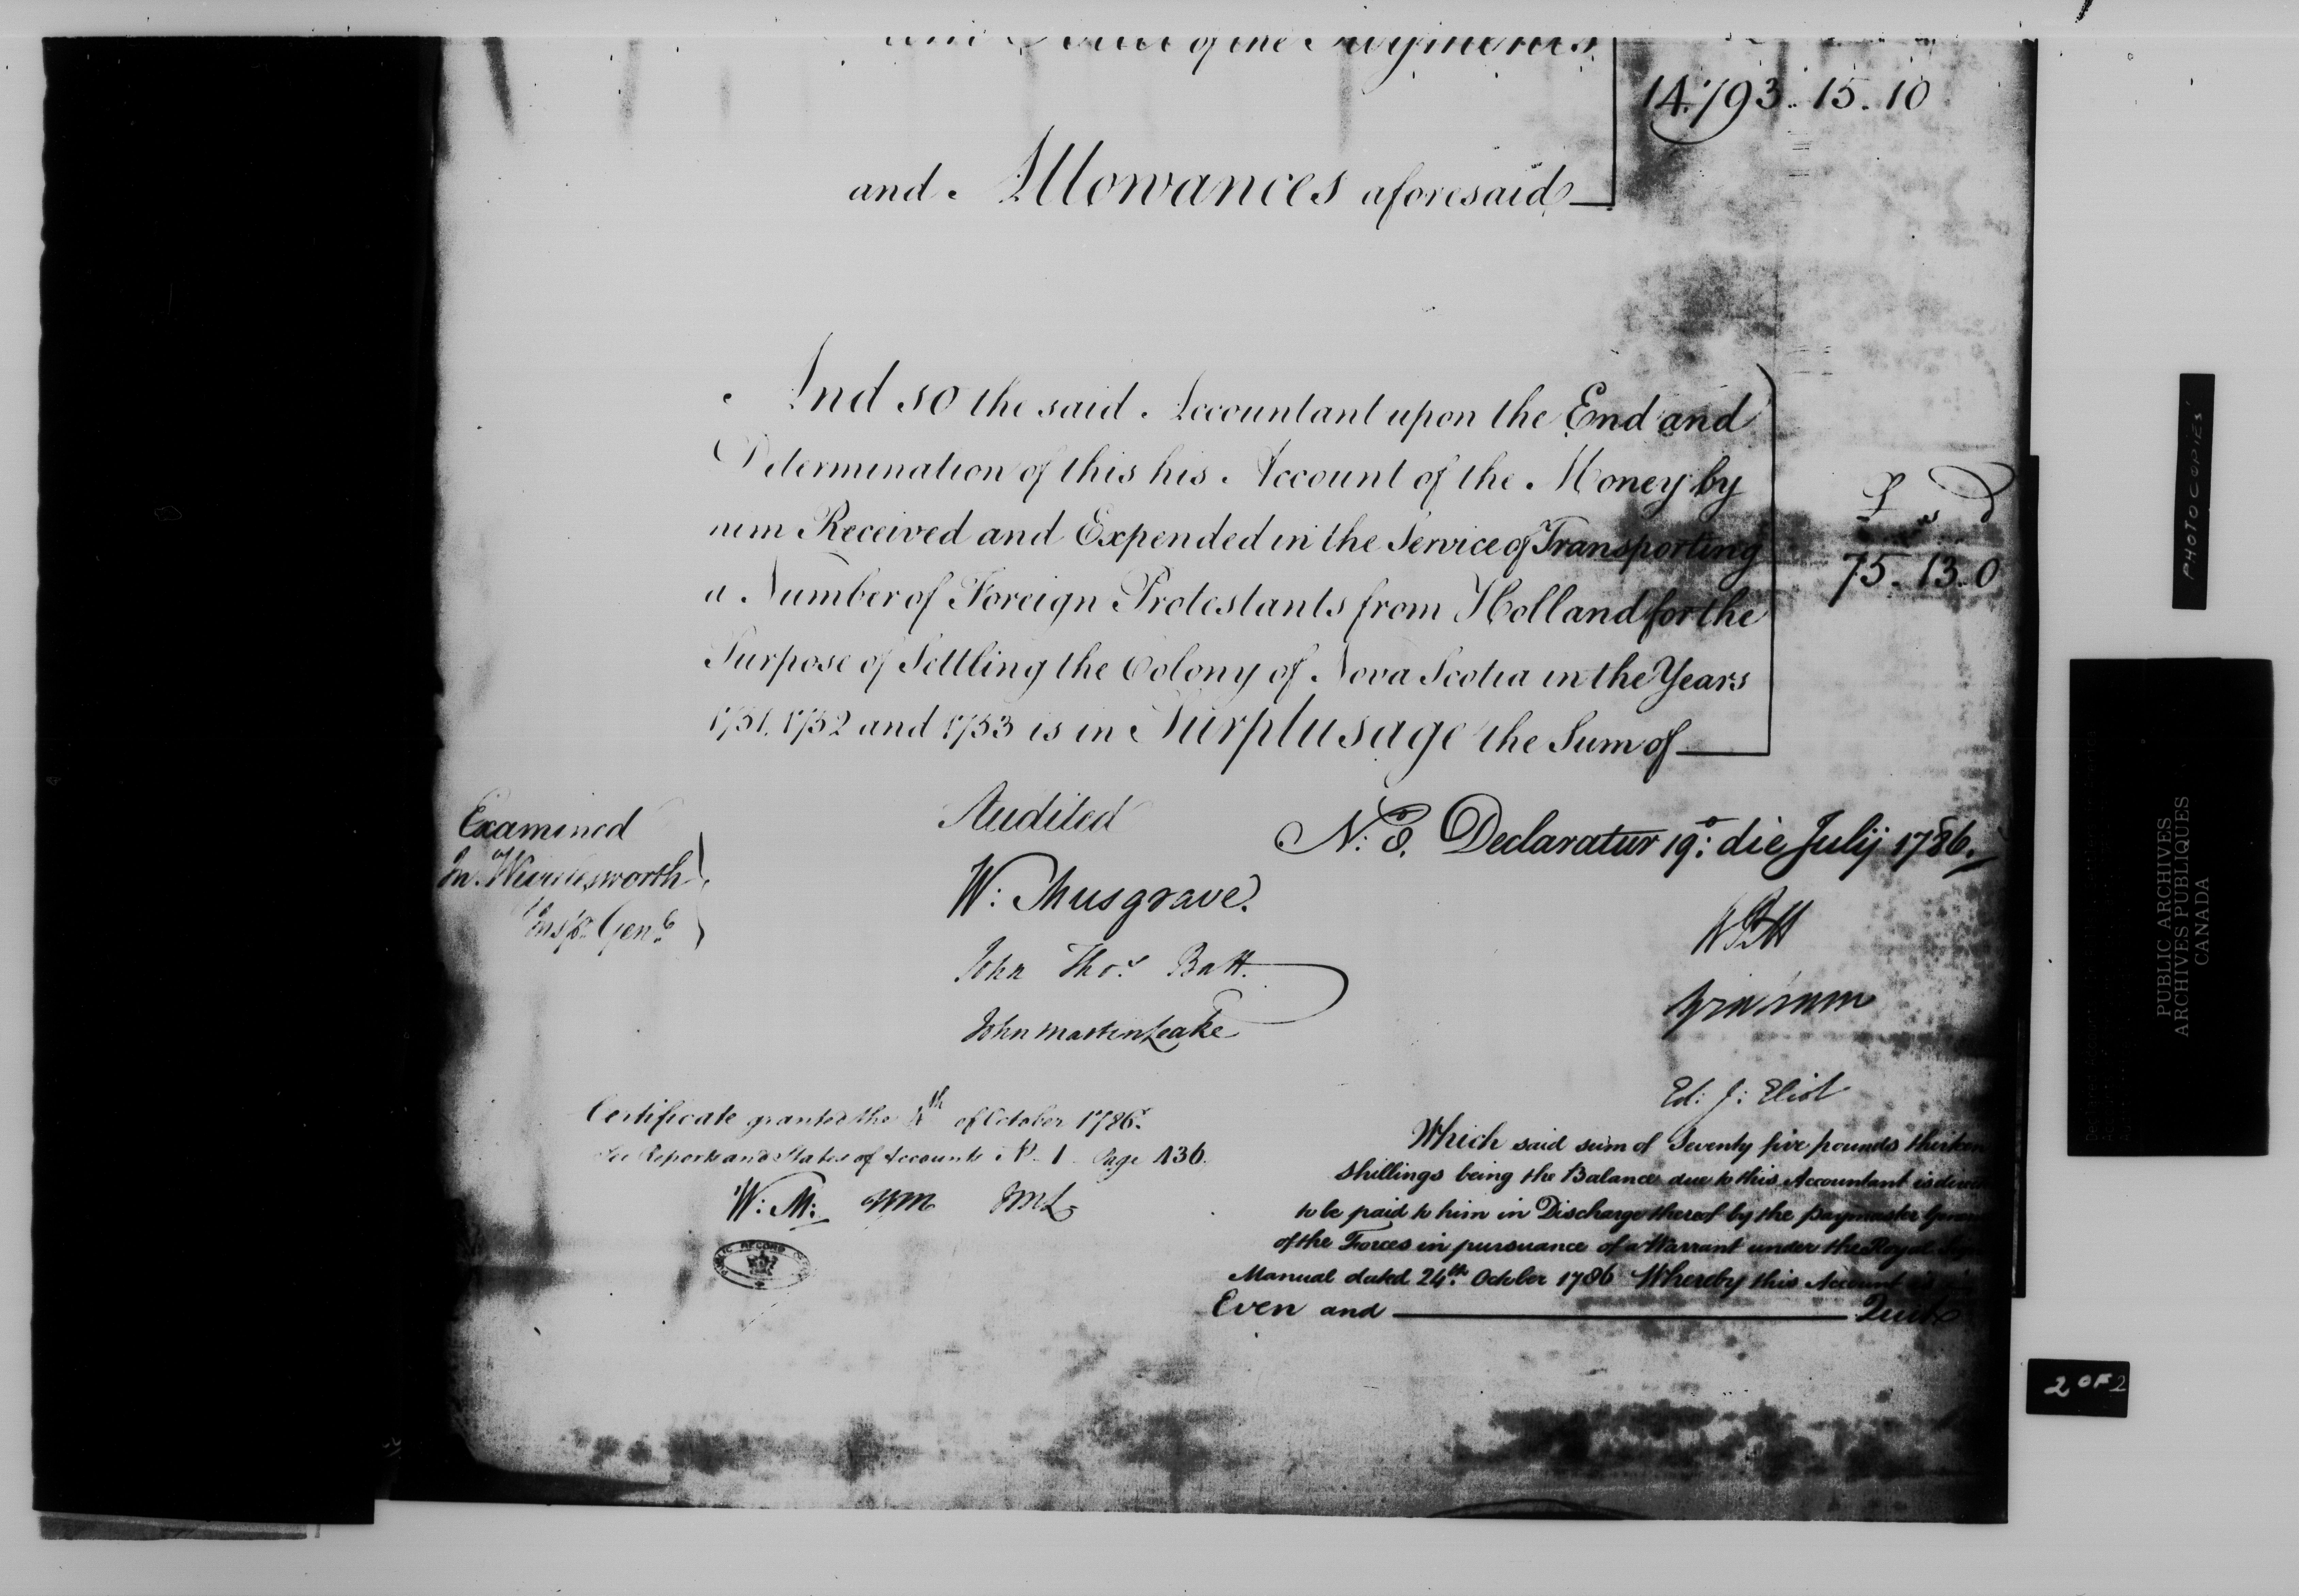 of the Payments
14,793.. 15. 10
and Allowances aforesaid
And so the said Accountant upon the End and
Determination of this his Account of the Money by
him Received and Expended in the Service of Transporting
a Number of Foreign Protestants from Holland for the
Purpose of Settling the Colony of Nova Scotia in the Years
1751, 1752 and 1753 is in Surplusage the Sum of
£ s D
75. 13. 0
Examined
Insp.r Gen.l
Audited
W: Musgrave.
John Tho.s Batt.
John Martin Leake
Declaratur 19.o die Julij 1786.
W Pitt
Ed: J: Eliot
Certificate granted the 4th of October 1786.
See Reports and States of Accounts No. 1 Page 436.
W: M: JML
PUBLIC RECORD OFFICE
Which said sum of Seventy five pounds thirteen
shillings being the Balance due to this Accountant is
to be paid to him in Discharge thereof by the Paymaster General
of the Forces in pursuance of a Warrant under the Royal Sign
Manual dated 24.th October 1786 Whereby this Account is
Even and Quit
PHOTOCOPIES
PUBLIC ARCHIVES
ARCHIVES PUBLIQUES
CANADA
2 OF 2